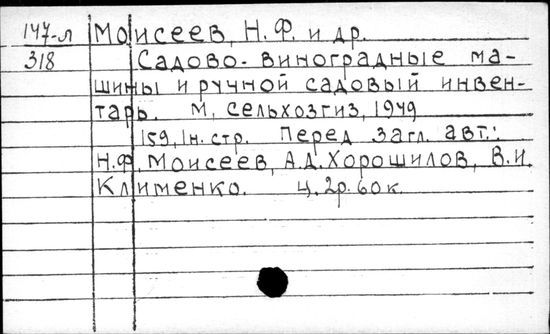 147-л Моисеев, Н.Ф. и др.
318 Садово-виноградные ма-
шины и ручной садовый инвен-
тарь. М, Сельхозгиз, 1949
159, 1н. стр. Перед загл. авт.:
Н.Ф. Моисеев, А.Д. Хорошилов, В.И.
Клименко. Ц. 2р. 60к.